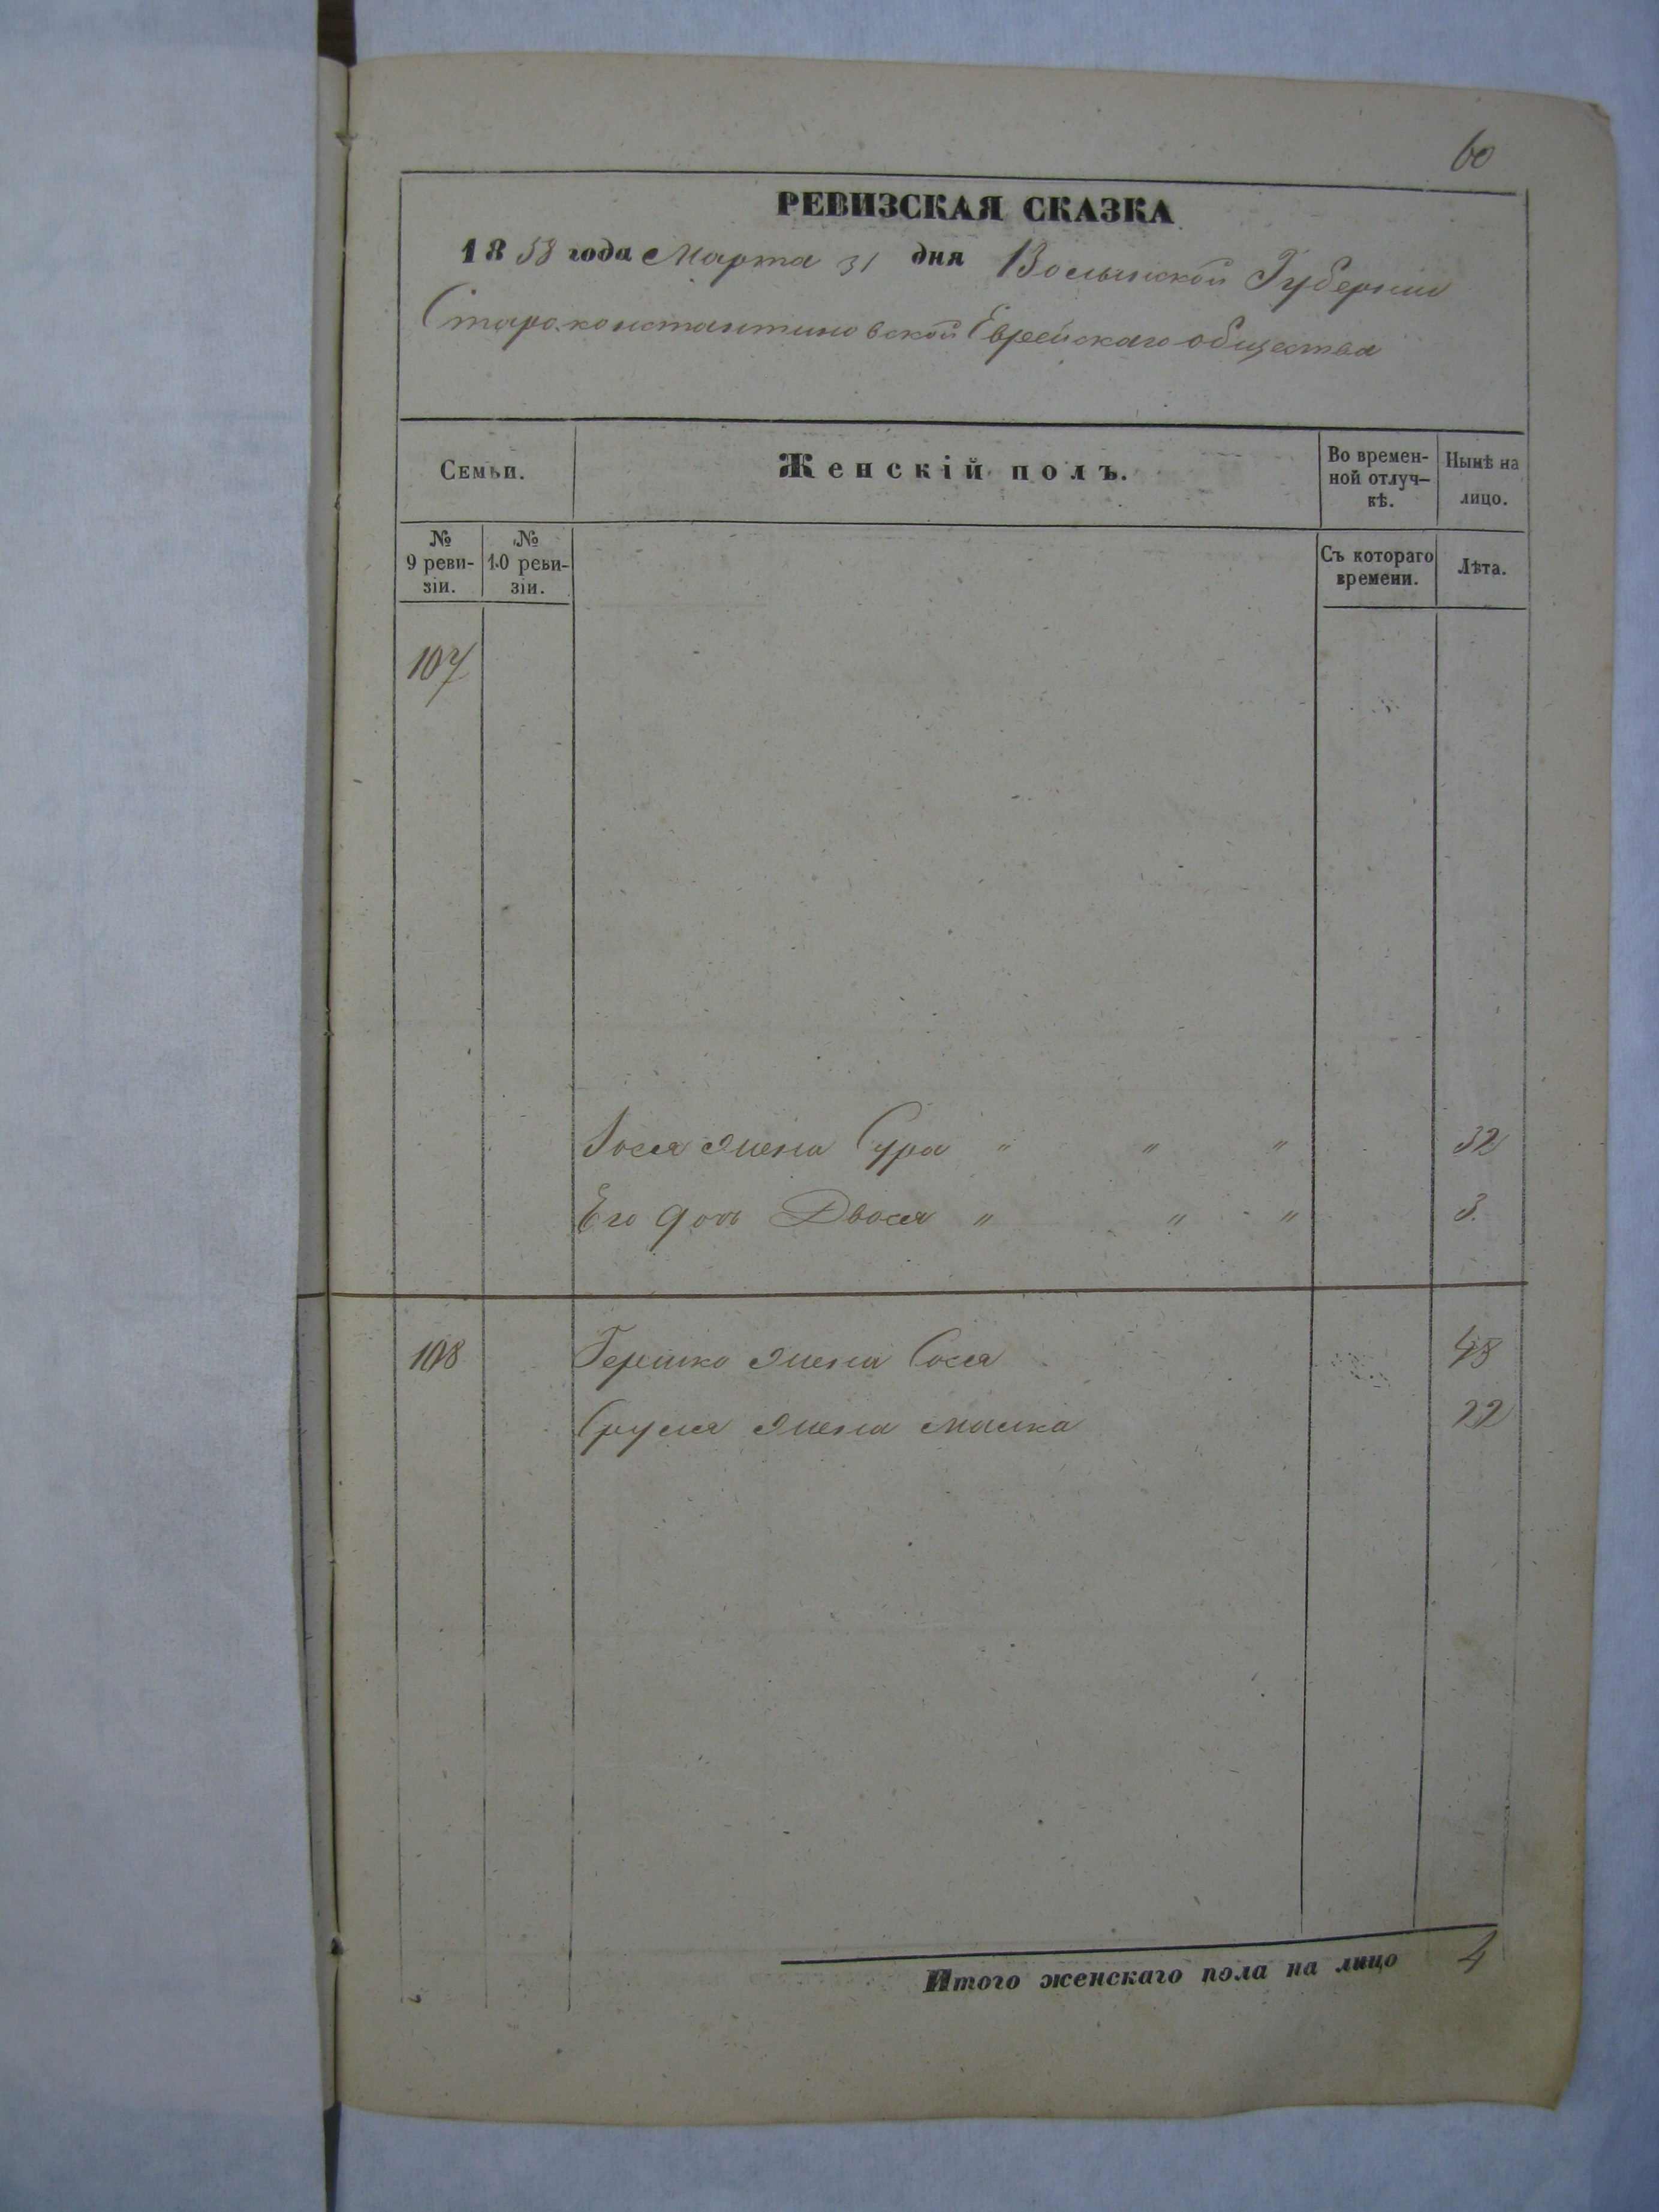 60
РЕВИЗСКАЯ СКАЗКА
1858 года Марта 31 дня Волынской Губерніи
Староконстантиновской Еврейскаго общества
Семьи.
Женскій полъ.
Во времен-
ной отлуч-
кѣ.
Нынѣ на
лицо.
№
9 реви-
зіи.
№
10 реви-
зіи.
Съ котораго
времени.
Лѣта.
107
Іося жена Сура " " " 32
Его доч Двося " " " 3.
108 Гершко жена Сося
Сруля жена Малка 22
Итого женскаго пола на лицо 4